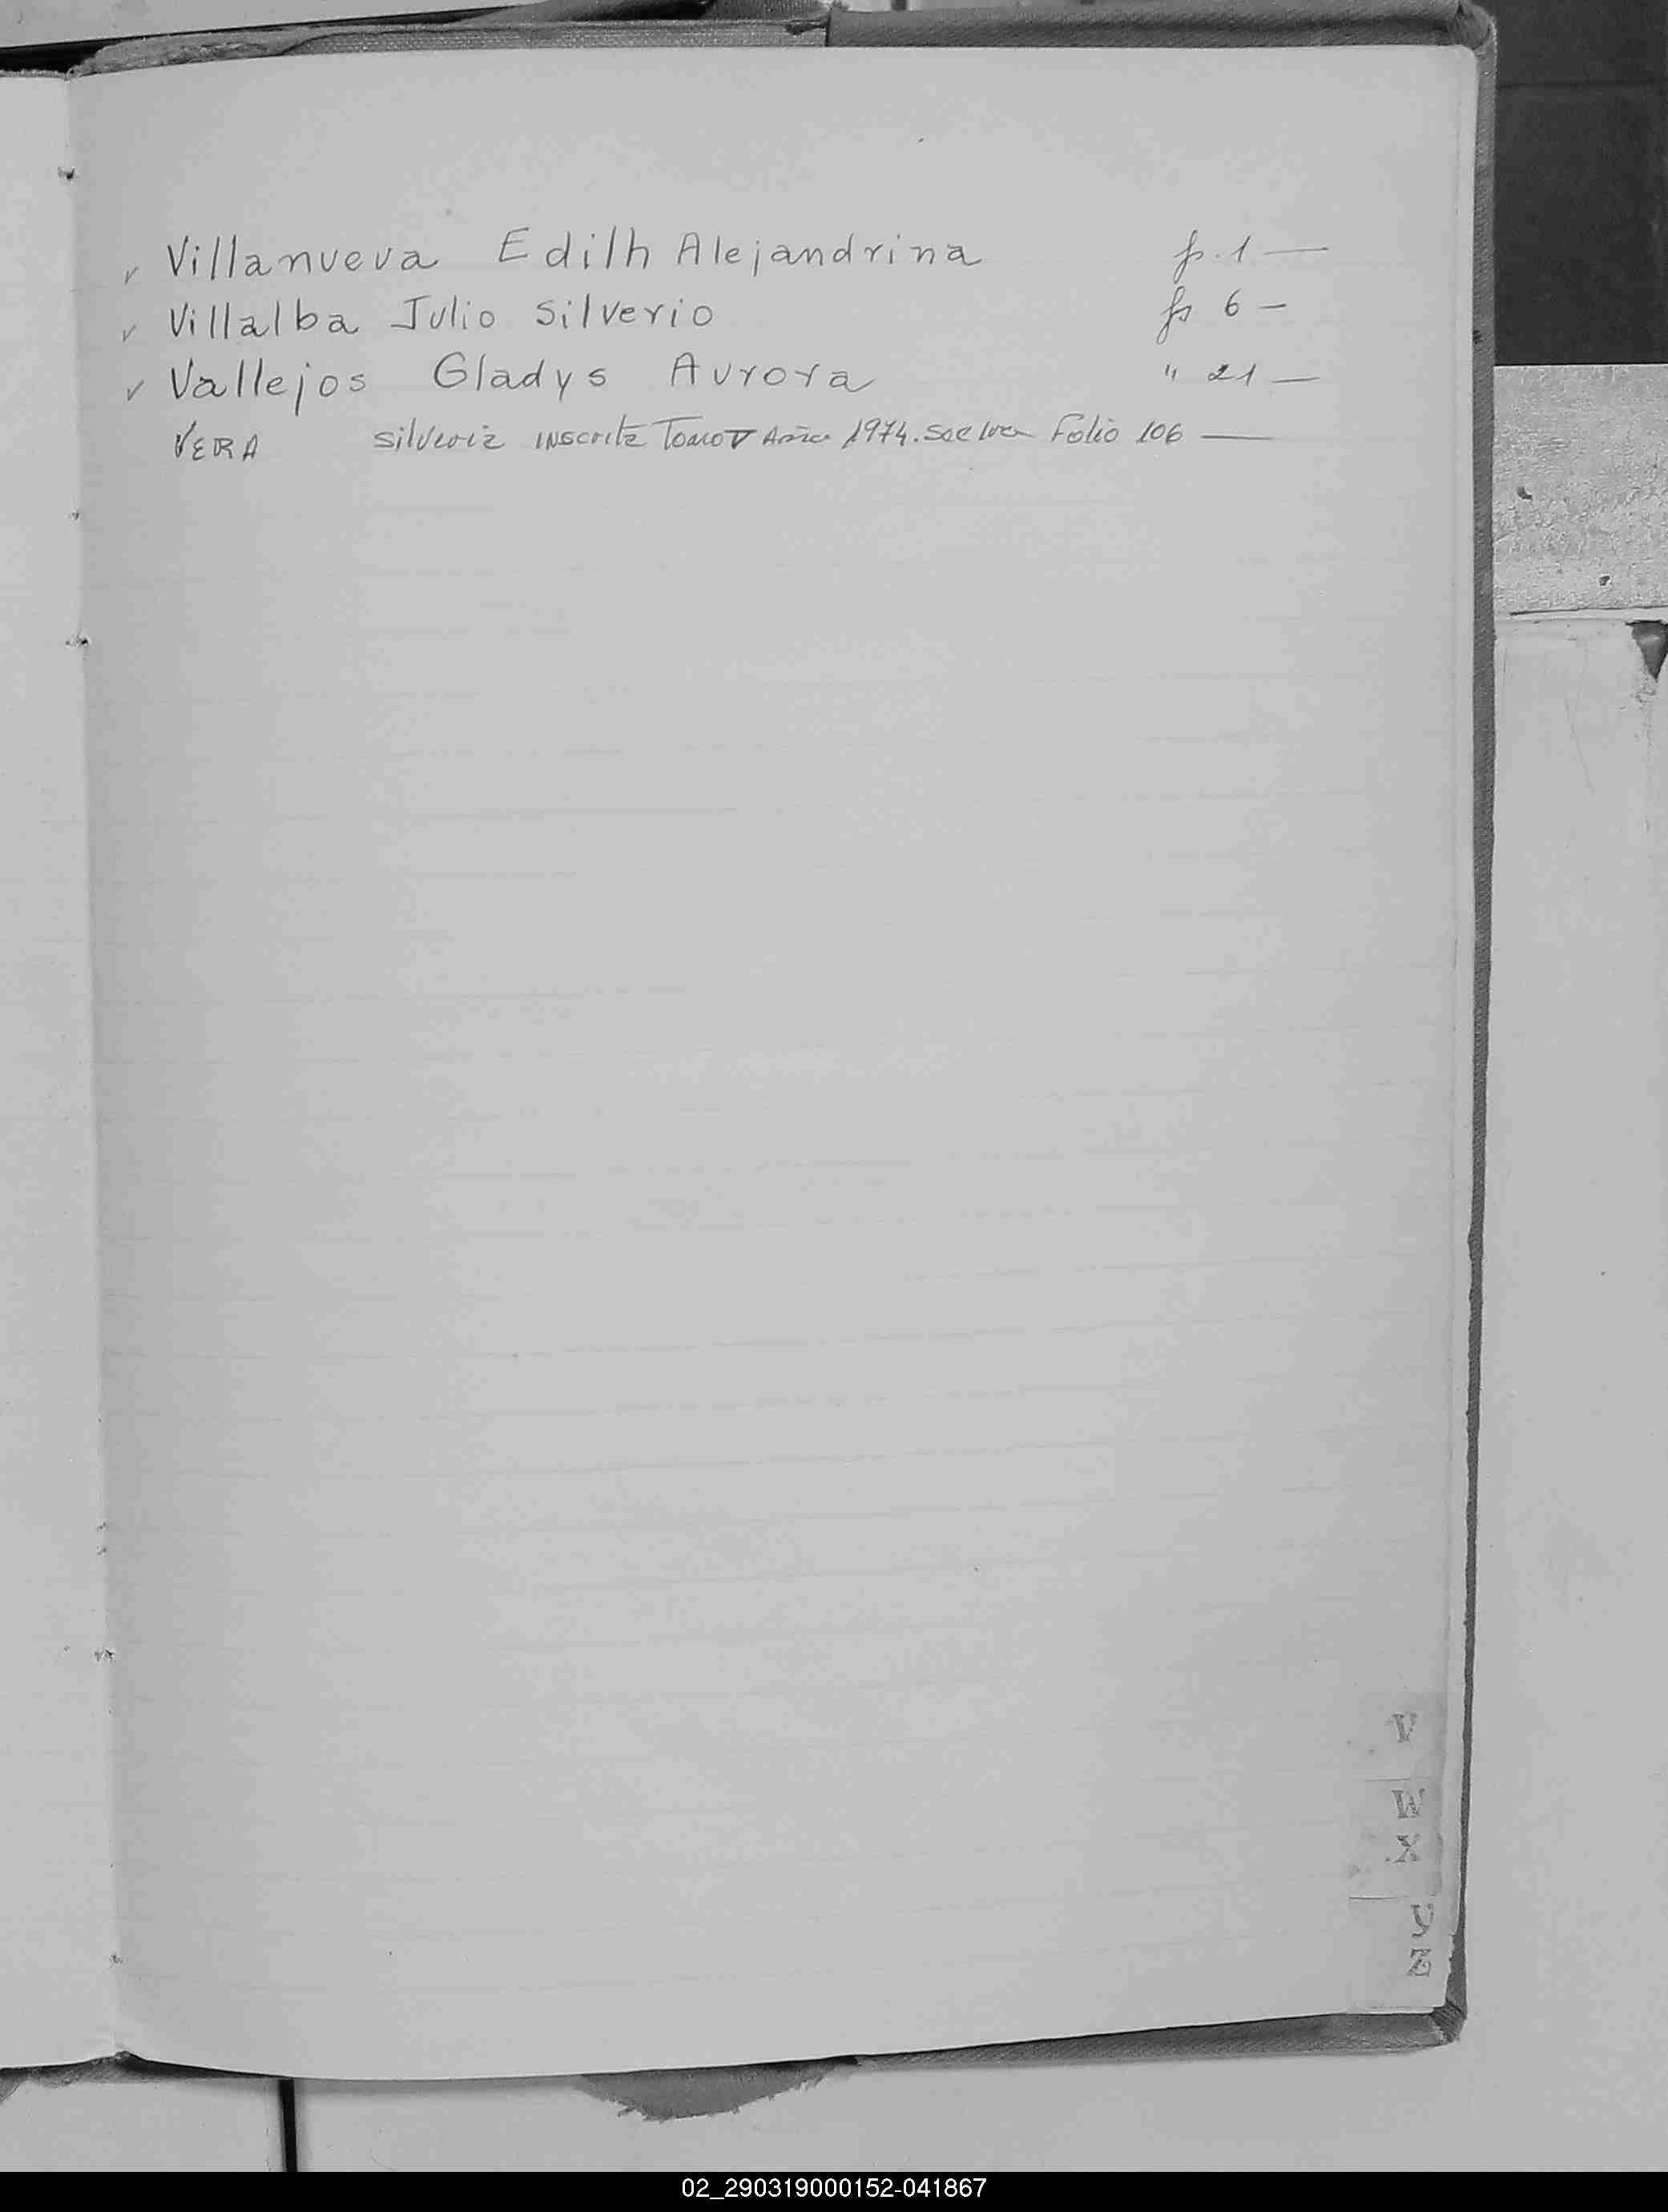 ✓ Villanueva Edilh Alejandrina fs. 1 —
✓ Villalba Julio Silverio fs 6 —
✓ Vallejos Gladys Aurora " 21 —
VERA Silveria inscrita Tomo V Año 1974. Folio 106 —
V
W
X
Y
Z
02_290319000152-041867